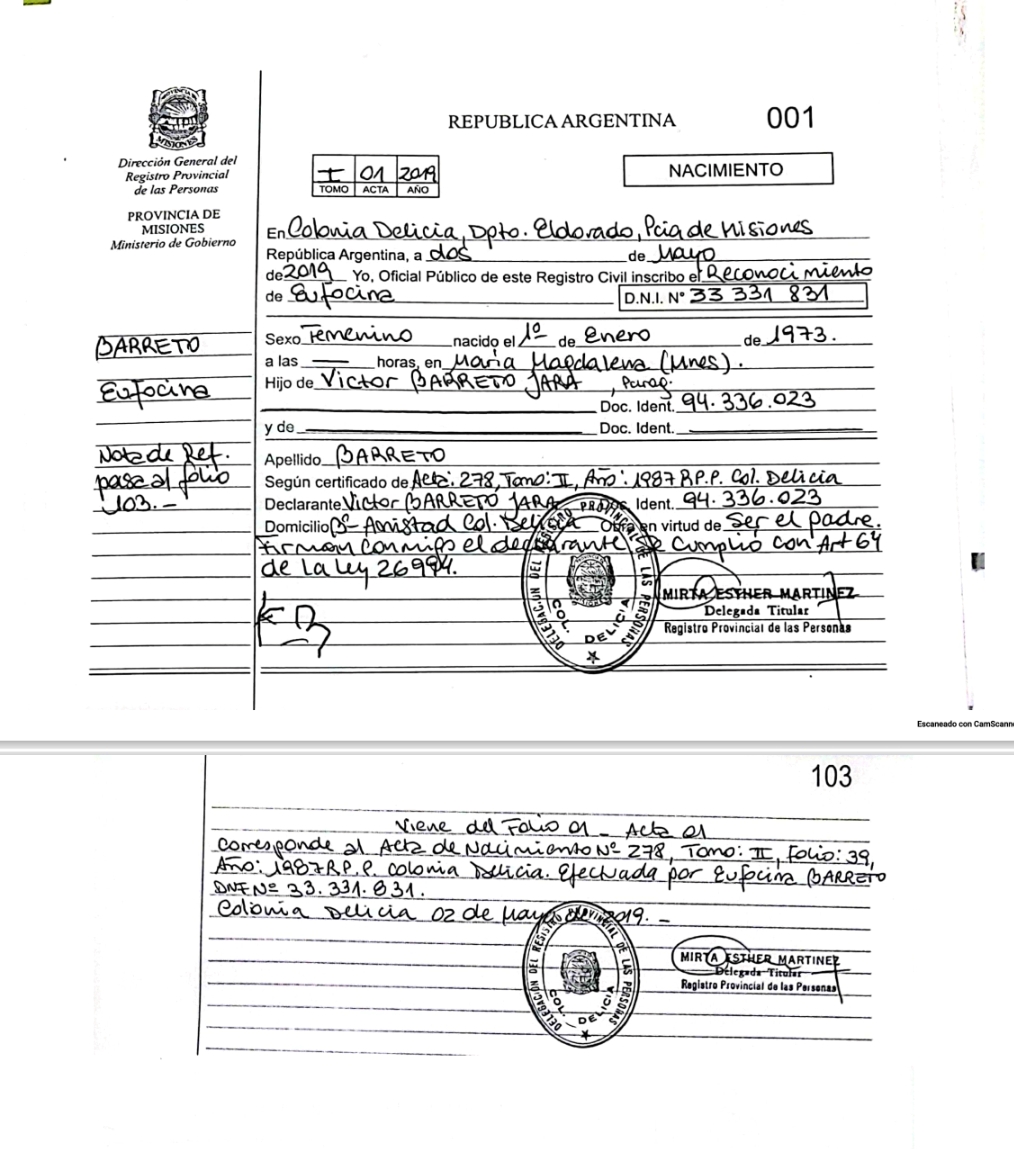 REPUBLICA ARGENTINA
001
PROVINCIA DE
MISIONES
Dirección General del
Registro Provincial
de las Personas
PROVINCIA DE
MISIONES
Ministerio de Gobierno
I 01 2019
TOMO ACTA AÑO
NACIMIENTO
En Colonia Delicia, Dpto. Eldorado, Pcia de Misiones
República Argentina, a dos de Mayo
de 2019 Yo, Oficial Público de este Registro Civil inscribo el Reconocimiento
de Eufocina D.N.I. Nº 33 331 831
Sexo Femenino nacido el 1º de Enero de 1973.
a las horas, en Maria Magdalena (Mnes).
Hijo de Victor BARRETO JARA, Parag.
Doc. Ident. 94.336.023
y de Doc. Ident.
Apellido BARRETO
Según certificado de Acta: 278, Tomo: II, Año: 1987 R.P.P. Col. Delicia
Declarante Victor BARRETO JARA Ident. 94.336.023
Domicilio Bº Amistad Col. Delicia Obra en virtud de Ser el padre.
Firman conmigo el declarante Se cumplió con Art 64
de la ley 26994.
BARRETO
Eufocina
Nota de Ref.
pasa al folio
103.-
DELEGACIÓN DEL REGISTRO PROVINCIAL DE LAS PERSONAS
COL. DELICIA
MIRTA ESTHER MARTINEZ
Delegada Titular
Registro Provincial de las Personas
Escaneado con CamScanne
103
Viene del Folio 01 - Acta 01
Corresponde al Acta de Nacimiento Nº 278, Tomo: II, Folio: 39,
Año: 1987 R.P.P. Colonia Delicia. Efectuada por Eufocina BARRETO
DNI Nº 33.331.831.
Colonia Delicia 02 de Mayo de 2019.-
DELEGACIÓN DEL REGISTRO PROVINCIAL DE LAS PERSONAS
COL. DELICIA
MIRTA ESTHER MARTINEZ
Delegada Titular
Registro Provincial de las Personas